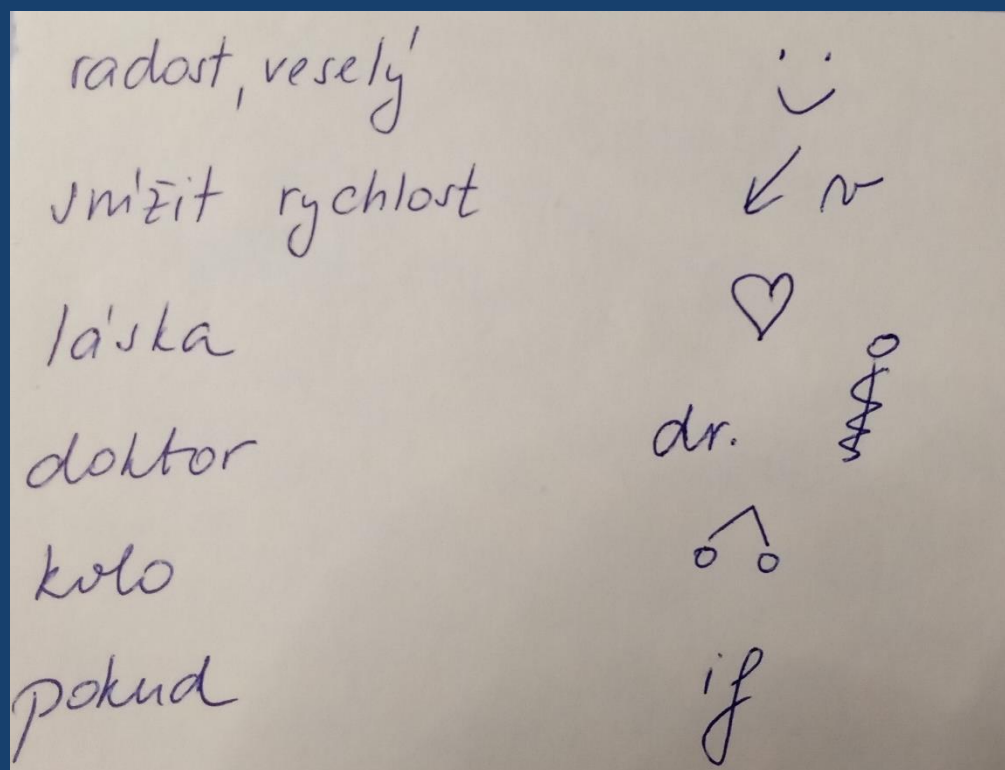 radost, veselý
snížit rychlost v
láska
doktor dr.
kolo
pokud if